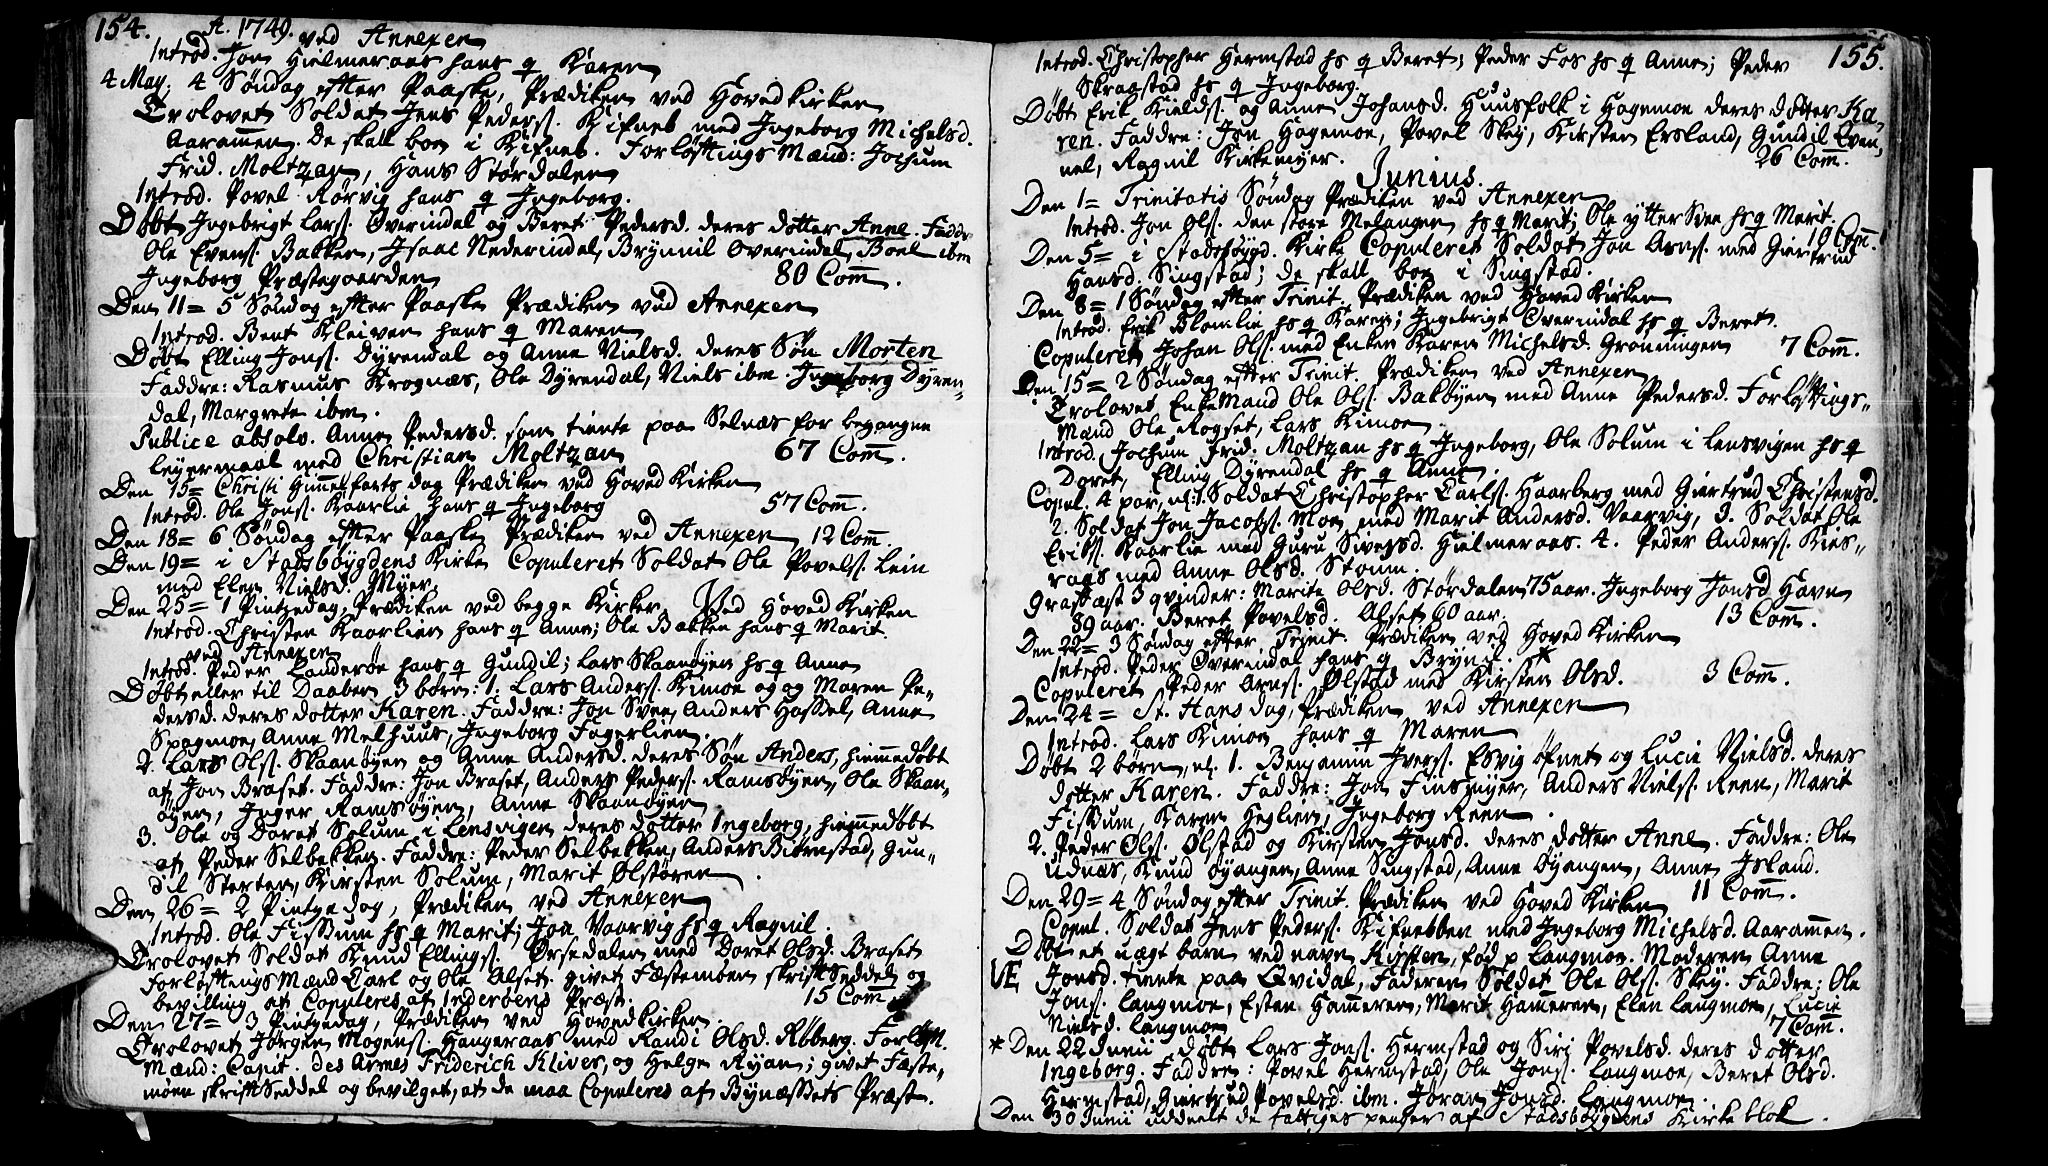 154. A. 1749. ved Annexen
Introd. Jon Hielmeraas hans q Karen
4 May; 4 Søndag efter Paaske, Prædiken ved Hovedkirken
Trolovet Soldat Jens Peders. Kifneb med Ingeborg Michelsd.
Aarammen. De skall boe i Kifneb. Forløftings Mænd: Jochum
Frid. Moltzan, Hans Størdalen
Introd. Povel Rørvig hans q Ingeborg.
Døbt Ingebrigt Larss. Overindal og Beret Pedersd. deres dotter Anne. Faddr.
Ole Evens. Bakken, Isaac Nederindal, Brynnil Overindal, Boel ibm
Ingeborg Præstegaarden 80 Comm.
Den 11= 5 Søndag efter Paaske Prædiken ved Annexen
Introd. Bent Kleiven hans q Maren
Døbt Elling Jons. Dyrendal og Anne Nielsd. deres Søn Morten
Faddre: Rasmus Krognæs, Ole Dyrendal, Niels ibm. Ingeborg Dyren-
dal, Margrete ibm.
Publice absolv. Anne Pedersd. som tiente paa Selnæs for begangne
leyermaal med Christian Moltzan 67 Comm.
Den 15= Christi Himmelfarts dag Prædiken ved Hoved Kirken
Introd. Ole Jons. Kaarlie hans q Ingeborg 57 Comm.
Den 18= 6 Søndag efter Paaske Prædiken ved Annexen 12 Comm.
Den 19= i Stadsbøygdens Kirke Copuleret Soldat Ole Povels. Lein
med Elen Nielsd. Myer.
Den 25= 1 Pintzedag, Prædiken ved begge Kirker. Ved Hoved Kirken
Introd. Christen Kaarlien hans q Anne; Ole Bakken hans q Marit.
ved Annexen
Introd. Peder Landerøe hans q Gundil; Lars Skaanøyen hs q Anne
Døbt eller til Daaben 3 børn: 1. Lars Anders. Kimoe og og Maren Pe-
dersd. deres dotter Karen. Faddre: Jon Sven, Anders Hassel, Anne
Spagmoe, Anne Melhuus, Ingeborg Fagerlien.
2. Lars Ols. Skaanøyen og Anne Andersd. deres Søn Anders, hiemmedøbt
af Jon Braset. Faddre: Jon Braset, Anders Peders. Ramsøyen, Ole Skaan-
øyen, Inger Ramsøyen, Anne Skaanøyen
3. Ole og Doret Solum i Lensvigen deres dotter Ingeborg, hiemmedøbt
af Peder Selbekken. Faddre: Peder Selbekken, Anders Biørnstad, Gun-
dil Sterten, Kirsten Solum, Marit Ølstøren.
Den 26= 2 Pintzedag, Prædiken ved Annexen
Introd. Ole Fissum hs q Marit; Jon Vaarvig hs q Ragnil.
Trolovet Soldat Knud Ellings. Ørsedalen med Doret Olsd. Braset
Forløftings Mænd Carl og Ole Alset. givet Fæstemøen skriftSeddel og
bevilling at Copuleres af Inderøens Præst. 15 Comm.
Den 27= 3 Pintzedag, Prædiken ved Hovedkirken.
Trolovet Jørgen Mogens. Hangeraas med Randi Olsd. Røberg. Forløftn.
Mænd: Capit. des Armes Friderich Kliver, og Helge Ryan; givet Fæste-
møen skriftSeddel og bevilget, at de maa Copuleres af Bynæssets Præst.
155.
Introd. Christopher Hermstad hs q Beret; Peder Fos hs q Anne; Peder
Skraastad hs q Ingeborg.
Døbt Erik Kields. og Anne Johansd. Huusfolk i Hagemoe deres dotter Ka-
ren. Faddre: Jon Hagemoe, Povel Skey, Kirsten Ersland, Gundil Even-
nel, Ragnil Kirkemyer. 26 Comm.
Junius.
Den 1= Trinitatis Søndag Prædiken ved Annexen
Introd. Jon Ols. den store Melangen hs q Marit; Ole ytter Sven hs q Marit.
10 Comm.
Den 5= i Stadsbøygd. Kirke Copuleret Soldat Jon Arns. med Giertrud
Hansd. Singstad; de skall boe i Singstad.
Den 8= 1 Søndag efter Trinit. Prædiken ved Hoved Kirken
Introd. Erik Blomlie hs q Karen; Ingebrigt Overindal hs q Beret.
Copuleret Johan Ols. med Enken Karen Michelsd. Grønningen 7 Comm.
Den 15= 2 Søndag efter Trinit. Prædiken ved Annexen
Trolovet Enke Mand Ole Ols. Bakøyen med Anne Pedersd. Forløftings-
Mænd Ole Rogset, Lars Kimoe.
Introd. Jochum Frid. Moltzan hs q Ingeborg, Ole Solum i Lensvigen hs q
Doret, Elling Dyrendal hs q Anne.
Copul. 4 par, nl: 1. Soldat Christopher Carls. Haarberg med Giertrud Christensd.
2. Soldat Jon Jacobs. Moe med Marit Andersd. Vaarvig, 3. Soldat Ole
Eriks. Kaarlie med Guru Siversd. Hielmeraas. 4. Peder Anders. Kies-
raas med Anne Olsd. Stomn.
Grastfæst 3 qvinder: Marite Olsd. Størdalen 75 aar. Ingeborg Jonsd. Havn
89 aar. Beret Povelsd. Alset 60 aar. 13 Comm.
Den 22= 3 Søndag efter Trinit: Prædiken ved Hoved Kirken
Introd. Peder Overindal hans q Brynil. *
Copuleret Peder Arns. Ølstad med Kirsten Olsd. 3 Comm.
Den 24= St. Hans dag, Prædiken ved Annexen
Introd. Lars Kimoe hans q Maren
Døbt 2 børn, nl. 1. Benjamin Ivers. Esvig øfnet og Lucie Nielsd. deres
dotter Karen. Faddre: Jon Finsmyer, Anders Niels. Reen, Marit
Fissum, Karen Heglien, Ingeborg Reen.
2. Peder Ols. Ølstad og Kirsten Jonsd. deres dotter Anne. Faddre: Ole
Udnæs, Knud Øyangen, Anne Singstad, Anne Øyangen, Anne Island.
11 Comm.
Den 29= 4 Søndag efter Trinit. Prædiken ved Hoved Kirken
Copul. Soldat Jens Peders. Kifnebben med Ingeborg Michelsd. Aarammen.
Døbt et uægt barn ved navn Kirsten, fød p Langmoe. Moderen Anne
UE Jonsd. tiente paa Qvidal, Faderen Soldat Ole Ols. Skey. Faddre: Ole
Jons. Langmoe, Esten Hammeren, Marit Hameren, Elen Langmoe, Lucie
Nielsd. Langmoe 7 Comm.
* Den 22 Junii døbt Lars Jons. Hermstad og Siri Povelsd. deres dotter
Ingeborg. Faddre: Povel Hermstad, Ole Jons. Langmoe, Beret Olsd.
Hermstad, Giertrud Povelsd. ibm. Jøran Jonsd. Langmoe.
Den 30 Junii uddeelt de fattiges penger af Stadsbøygdens Kirke blok.